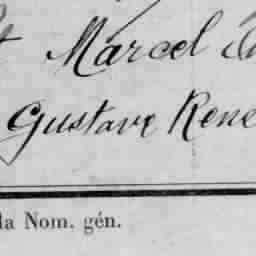 Marcel
Gustave Rene
la Nom. gén.